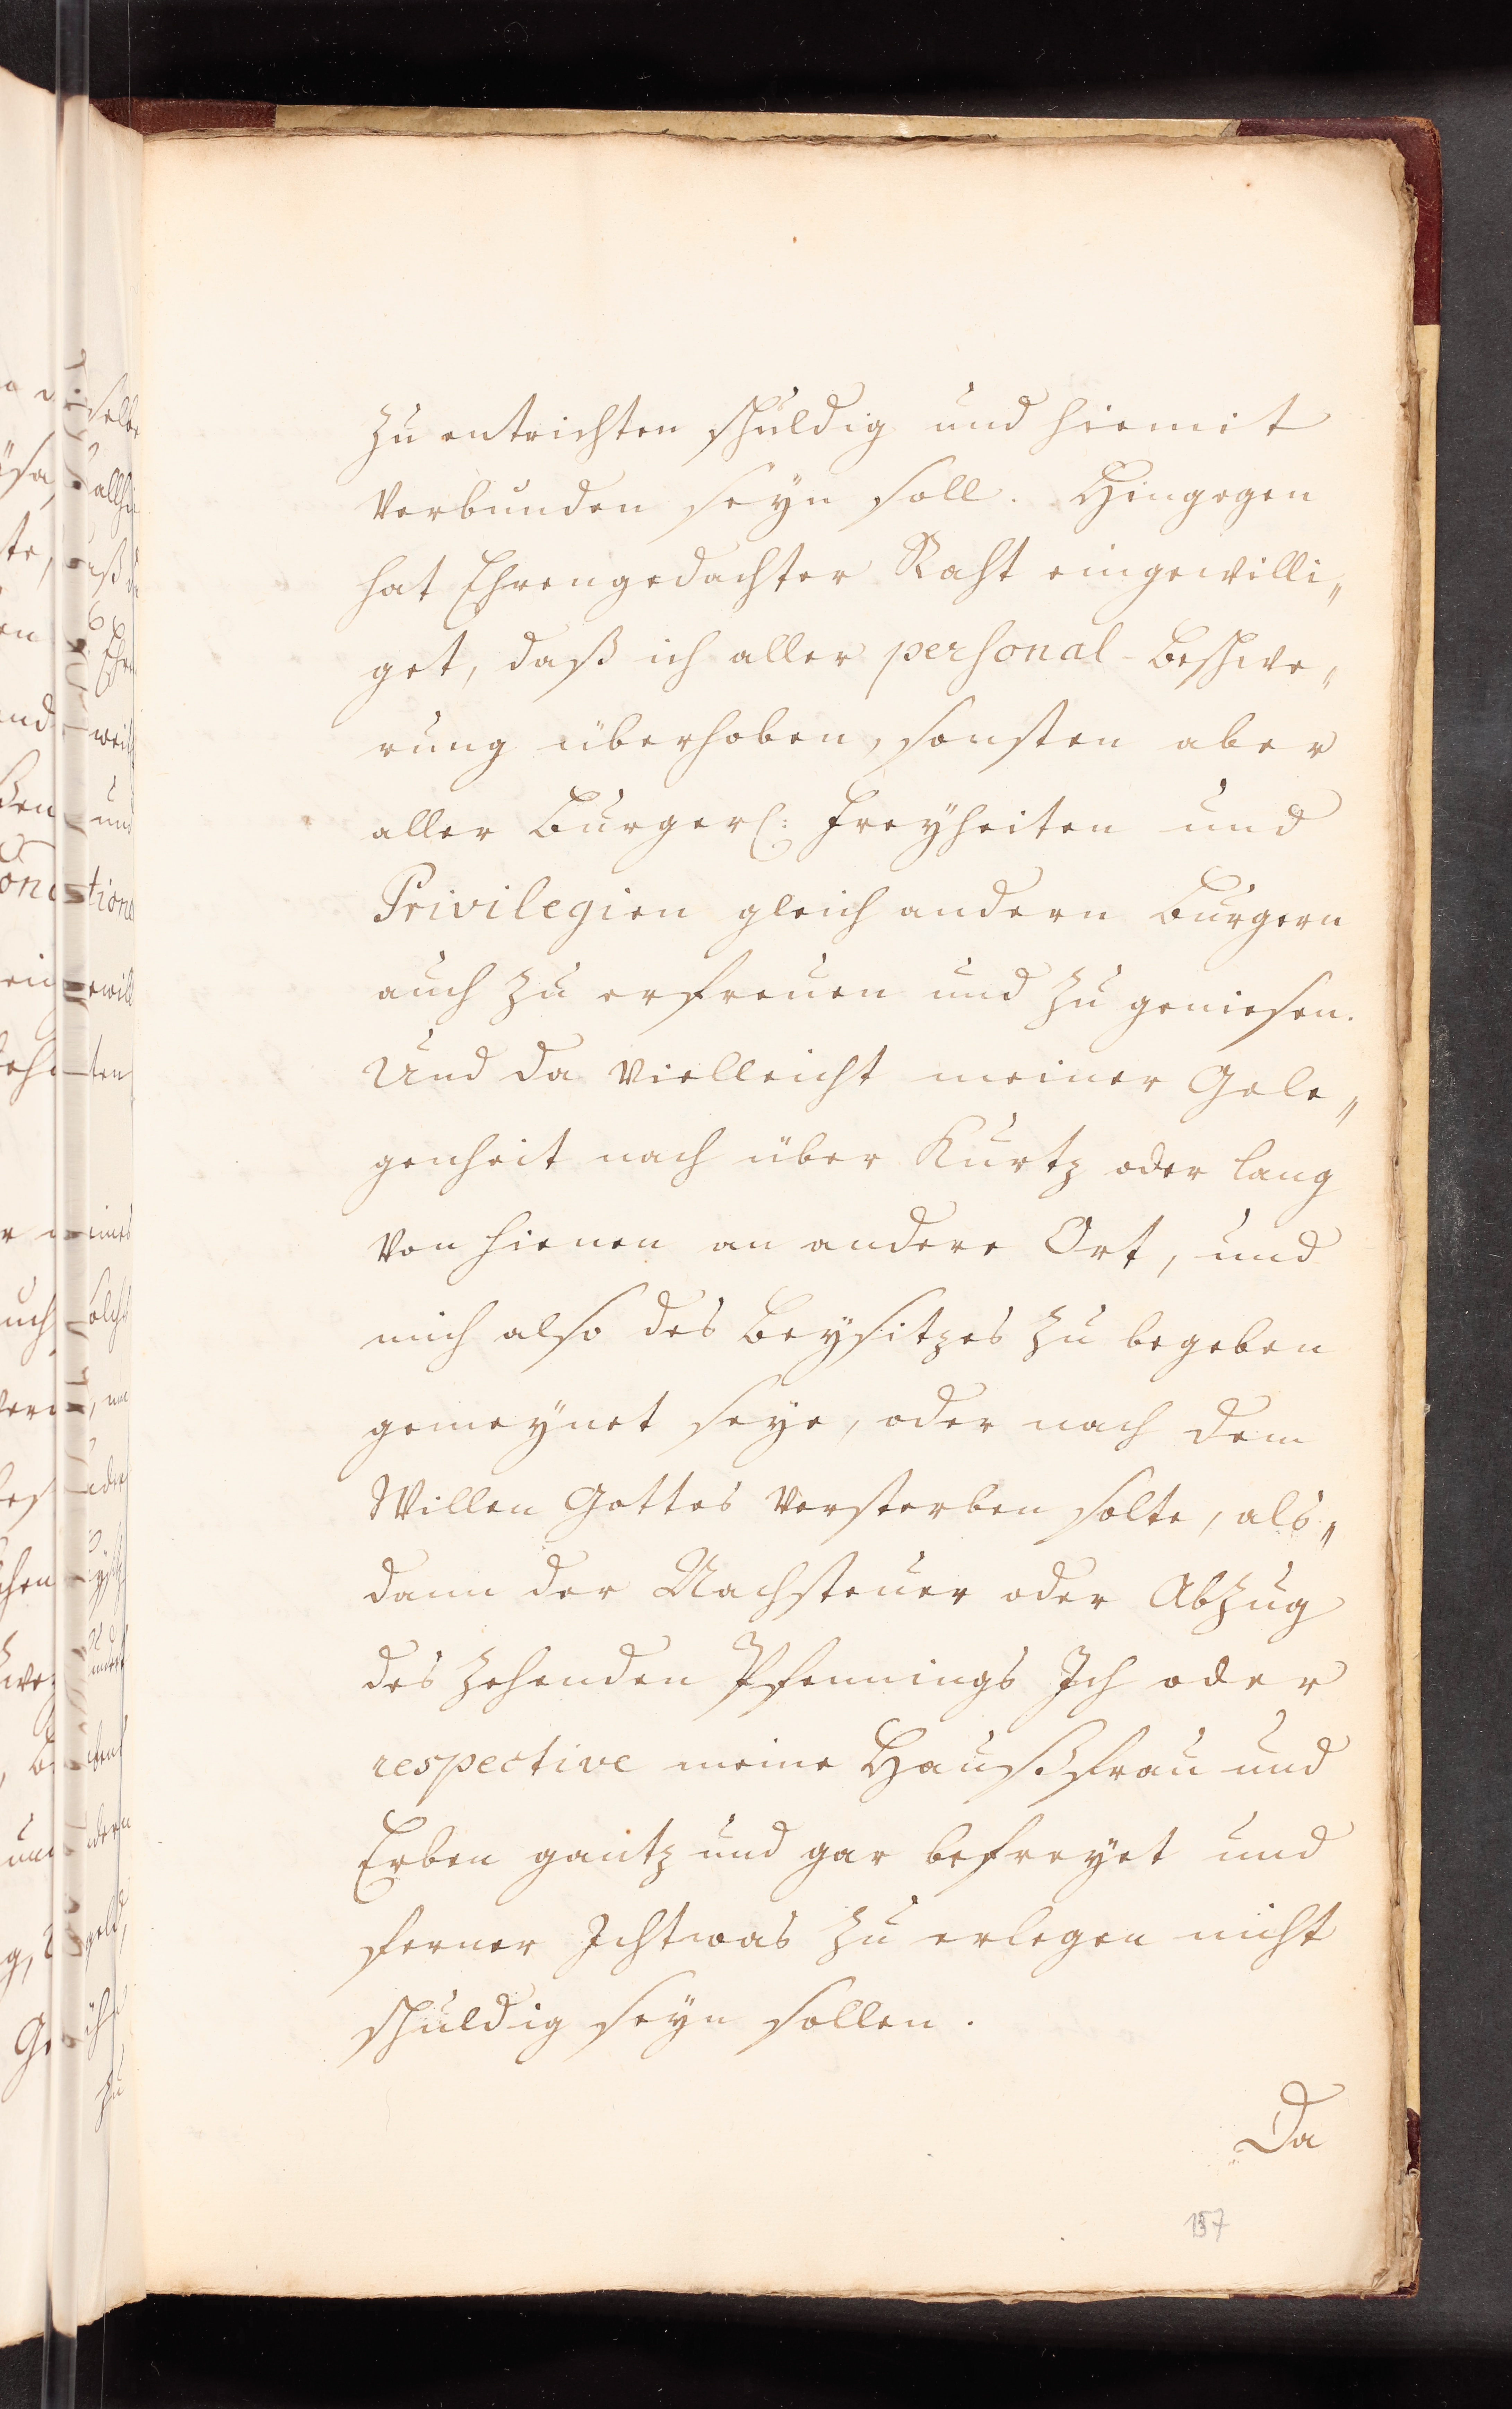 zu entrichten schuldig und hiemit
verbunden seyn soll. Hingegen
hat Ehrengedachter Raht eingewilli„
get, daß ich aller personal-Beschwe„
rung überhoben, sonsten aber
aller Burgerl: Freyheiten und
Privilegien gleich andern Burgern
auch zu erfreuen und zu geniesen.
Und da vielleicht meiner Gele„
genheit nach über Kurtz oder lang
von hienen an andere Ort, und
mich also des Beysitzes zu begeben
gemeynet seye, oder nach dem
Willen Gottes versterben solte, als„
dann der Nachsteuer oder Abzug
des zehenden Pfennings Ich oder
respective meine Haußfrau und
Erben gantz und gar befreyet und
ferner Ichtwas zu erlegen nicht
schuldig seyn sollen.
Da
157